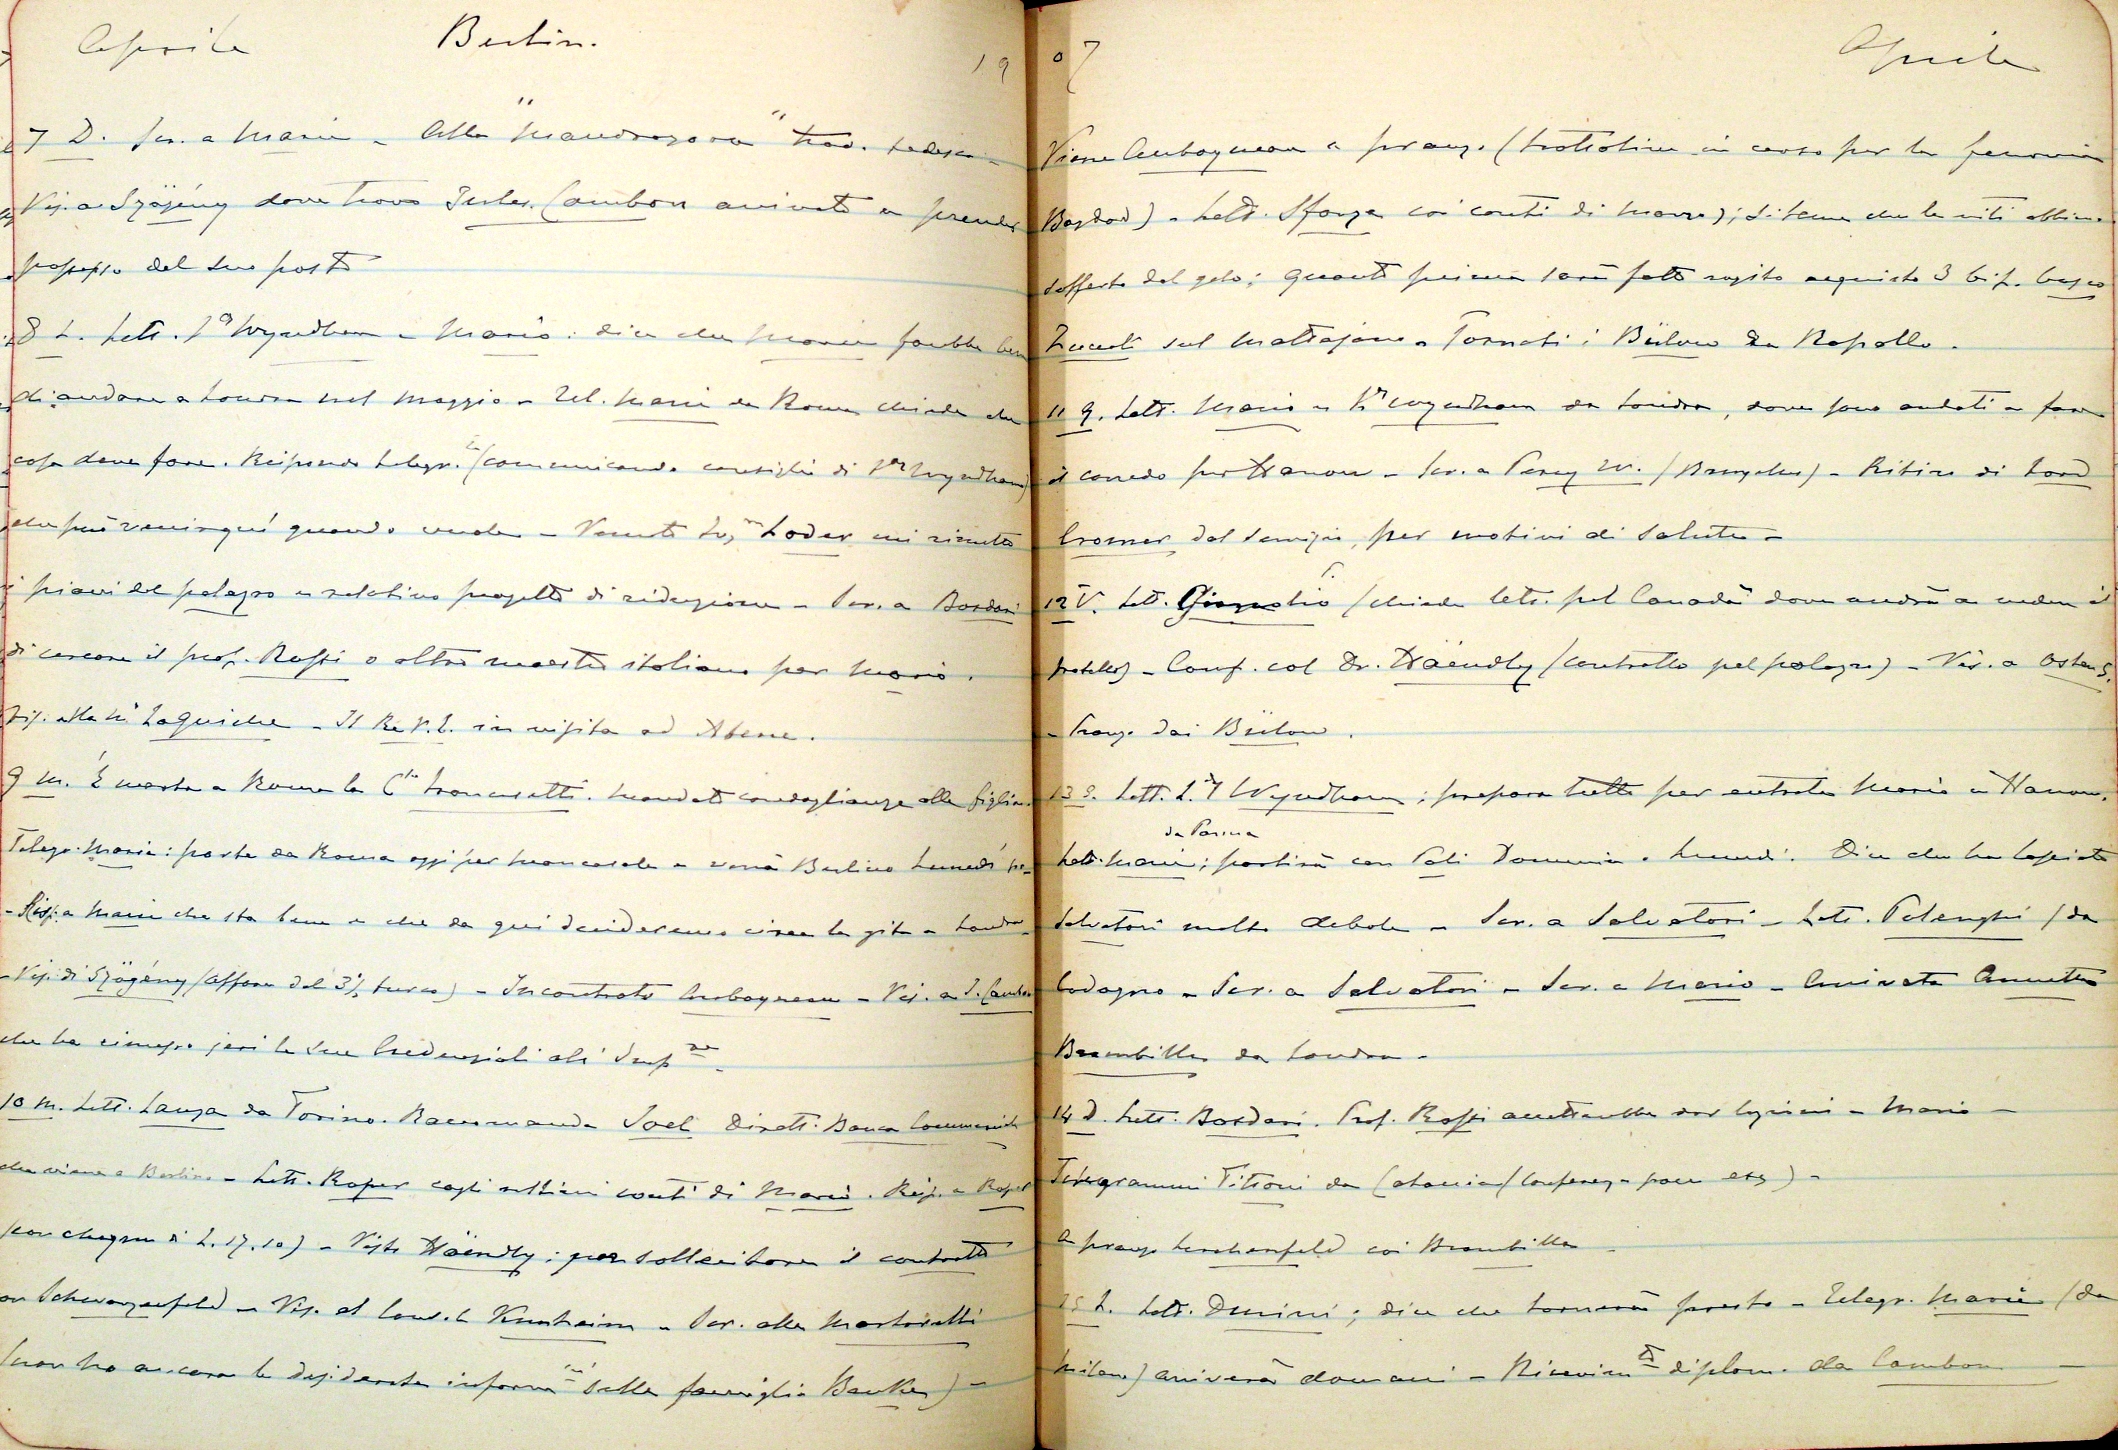 Aprile Berlin. 19
7 D. Scr. a Maria - Alla "Mandragora" trad. tedesca -
Vis. a Szögény dove trovo Jules Cambon arrivato a prender
possesso del suo posto
8 L. Lett. Wyndham - Mario: dice che Maria farebbe ben
di andare a Londra nel maggio - Tel. Maria da Roma chiede che
cosa deve fare. Rispondo telegr. (comunicando consiglio di Wyndham)
che può venir qui quando vuole - Venuto Loder mi rimette
i piani del palazzo e relativo progetto di riduzione - Scr. a Bordari
di cercare il prof. Rossi o altro maestro italiano per Mario.
Vis. alla Laguiche - Il Re V. E. in visita ad Atene.
9 M. È morta a Roma la C.sa. Mandato condoglianze alle figlie.
Telegr. Maria: parte da Roma oggi per e verrà Berlino Lunedì
- Risp. a Maria che sta bene e che da qui decideremo circa la gita a Londra
- Vis. di Szögény (affare del 3% turco) - Incontrato - Vis. a J. Cambon
che ha rimesso jeri le sue Credenziali all' Imp.re.
10 M. Lett. Lanza da Torino. Raccomanda Joel Dirett. Banca Commerciale
che viene a Berlino - Lett. Roper cogli ultimi conti di Maria. Risp. a Roper
(con chèque di L. 17.10) - Visto Händly; per sollecitare il contratto
Schwarzenfeld - Vis. al Cons.le Kunheim - Scr. alla Martorelli
(non ho ancora le desiderate inform.ni sulla famiglia)
07 Aprile
Viene a pranzo (trattative in corso per la ferrovia
Bagdad) - Lett. Sforza coi conti di Marzo; si teme che le viti abbian
sofferto del gelo; quanto prima sarà fatto rogito acquisto 3 bif. bosco
sul - Tornati i Bülow da Rapallo.
11 G. Lett. Mario e Wyndham da Londra, dove sono andati a fare
il corredo per Harrow - Scr. a Percy W. (Bruxelles) - Ritiro di Lord
Cromer dal servizio, per motivi di salute -
12 V. Lett. (chiede lett. pel Canadà dove andrà a vedere il
fratello) - Conf. col Dr. Händly (contratto pel palazzo) - Vis. a Osten S.
- Pranzo dai Bülow.
13 S. Lett. L.dy Wyndham; prepara tutto per entrata Mario a Harrow.
Lett. Maria da Parma; partirà con Domenica o Lunedì. Dice che ha lasciato
Salvatori molto debole - Scr. a Salvatori - Lett. Polenghi (da
Codogno - Scr. a Salvatori - Scr. a Mario - Arrivata Annetta
Brambilla da Londra -
14 D. Lett. Bordari. Prof. Rossi accetterebbe dar lezioni a Mario -
Telegrammi Tittoni da Catania (Conferenza pace etc) -
A pranzo Lerchenfeld coi Brambilla -
15 L. Lett. Dunini; dice che tornerà presto - Telegr. Maria (da
Milano) arriverà domani - Ricevim.to diplom. da Cambon -